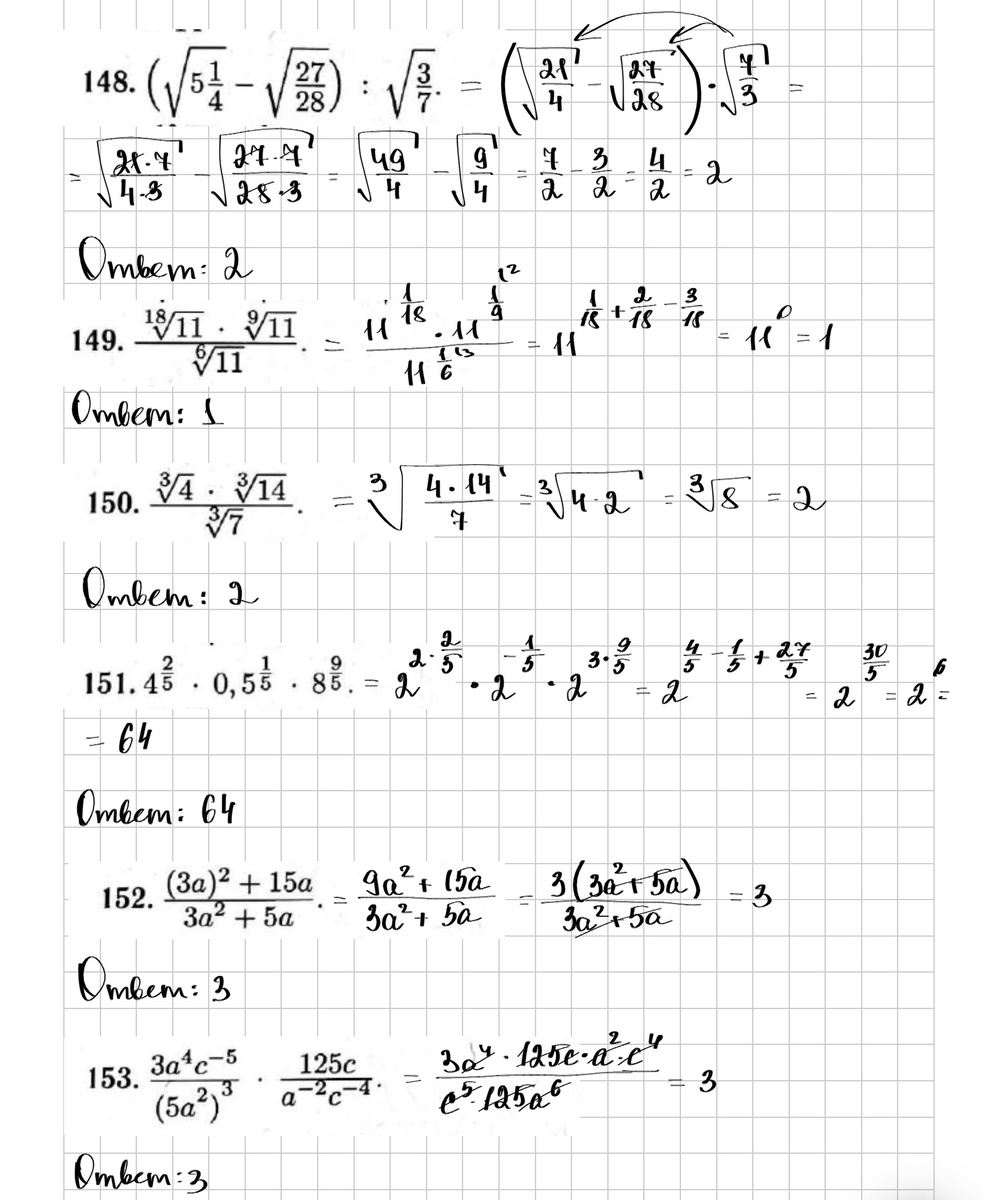 148. (√(5 1/4) − √(27/28)) : √(3/7). = (√(21/4) − √(27/28)) · √(7/3) =
= √((21·7)/(4·3)) − √((27·7)/(28·3)) = √(49/4) − √(9/4) = 7/2 − 3/2 = 4/2 = 2
Ответ: 2
149. (¹⁸√11 · ⁹√11)/(⁶√11). = (11^(1/18) · 11^(1/9 \2))/(11^(1/6 \3)) = 11^(1/18 + 2/18 − 3/18) = 11⁰ = 1
Ответ: 1
150. (³√4 · ³√14)/(³√7). = ³√((4·14)/7) = ³√(4·2) = ³√8 = 2
Ответ: 2
151. 4^(2/5) · 0,5^(1/5) · 8^(9/5). = 2^(2·2/5) · 2^(−1/5) · 2^(3·9/5) = 2^(4/5 − 1/5 + 27/5) = 2^(30/5) = 2⁶ =
= 64
Ответ: 64
152. ((3a)² + 15a)/(3a² + 5a). = (9a² + 15a)/(3a² + 5a) = (3(3a² + 5a))/(3a² + 5a) = 3
Ответ: 3
153. (3a⁴c⁻⁵)/((5a²)³) · (125c)/(a⁻²c⁻⁴). = (3a⁴ · 125c · a² · c⁴)/(c⁵ · 125a⁶) = 3
Ответ: 3